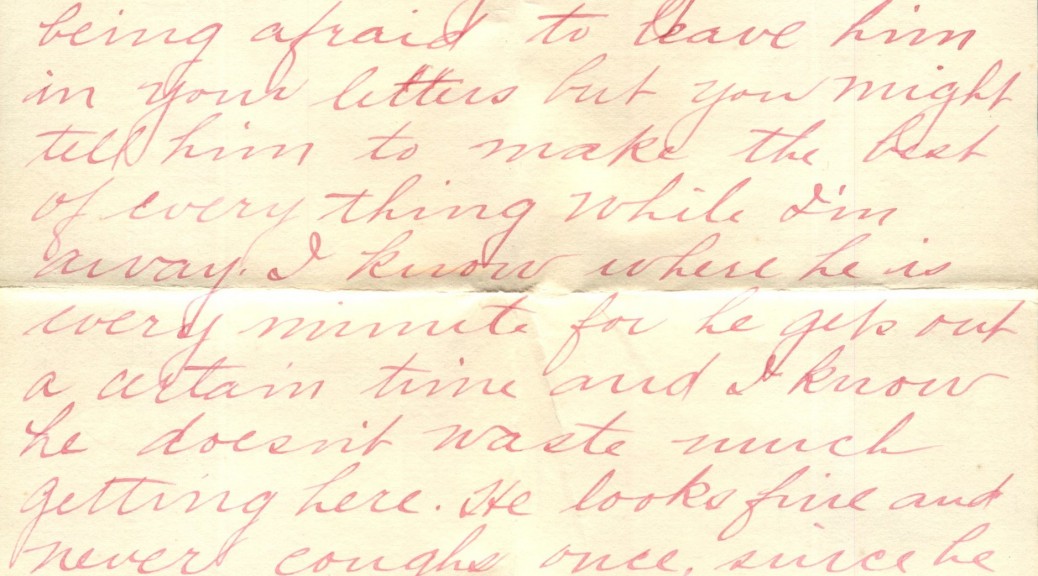 being afraid to leave him
in your letters but you might
tell him to make the best
of every thing while I'm
away. I know where he is
every minute for he gets out
a certain time and I know
he doesn't waste much
getting here. He looks fine and
never coughs once, since he